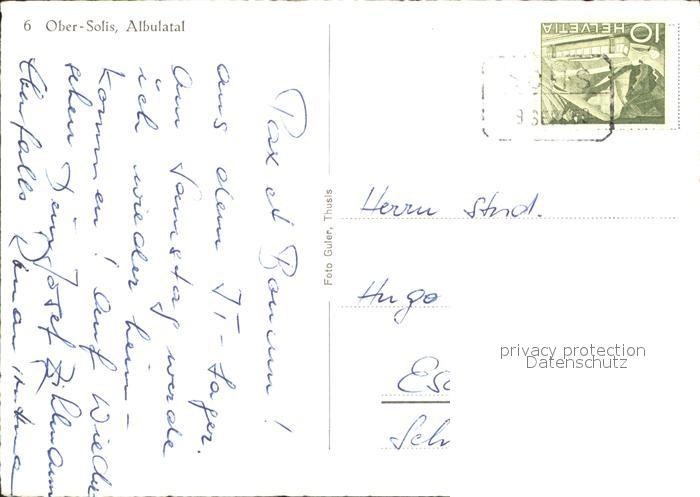 6 Ober-Solis, Albulatal
HELVETIA
10
Pax et Bonum!
aus dem JT-Lager.
Am Samstag werde
ich wieder heim-
kommen! Auf Wieder-
sehen Dein Josef
Ebenfalls
Foto Guler, Thusis
Herrn Stud.
Hugo
Esc
Sch
privacy protection
Datenschutz